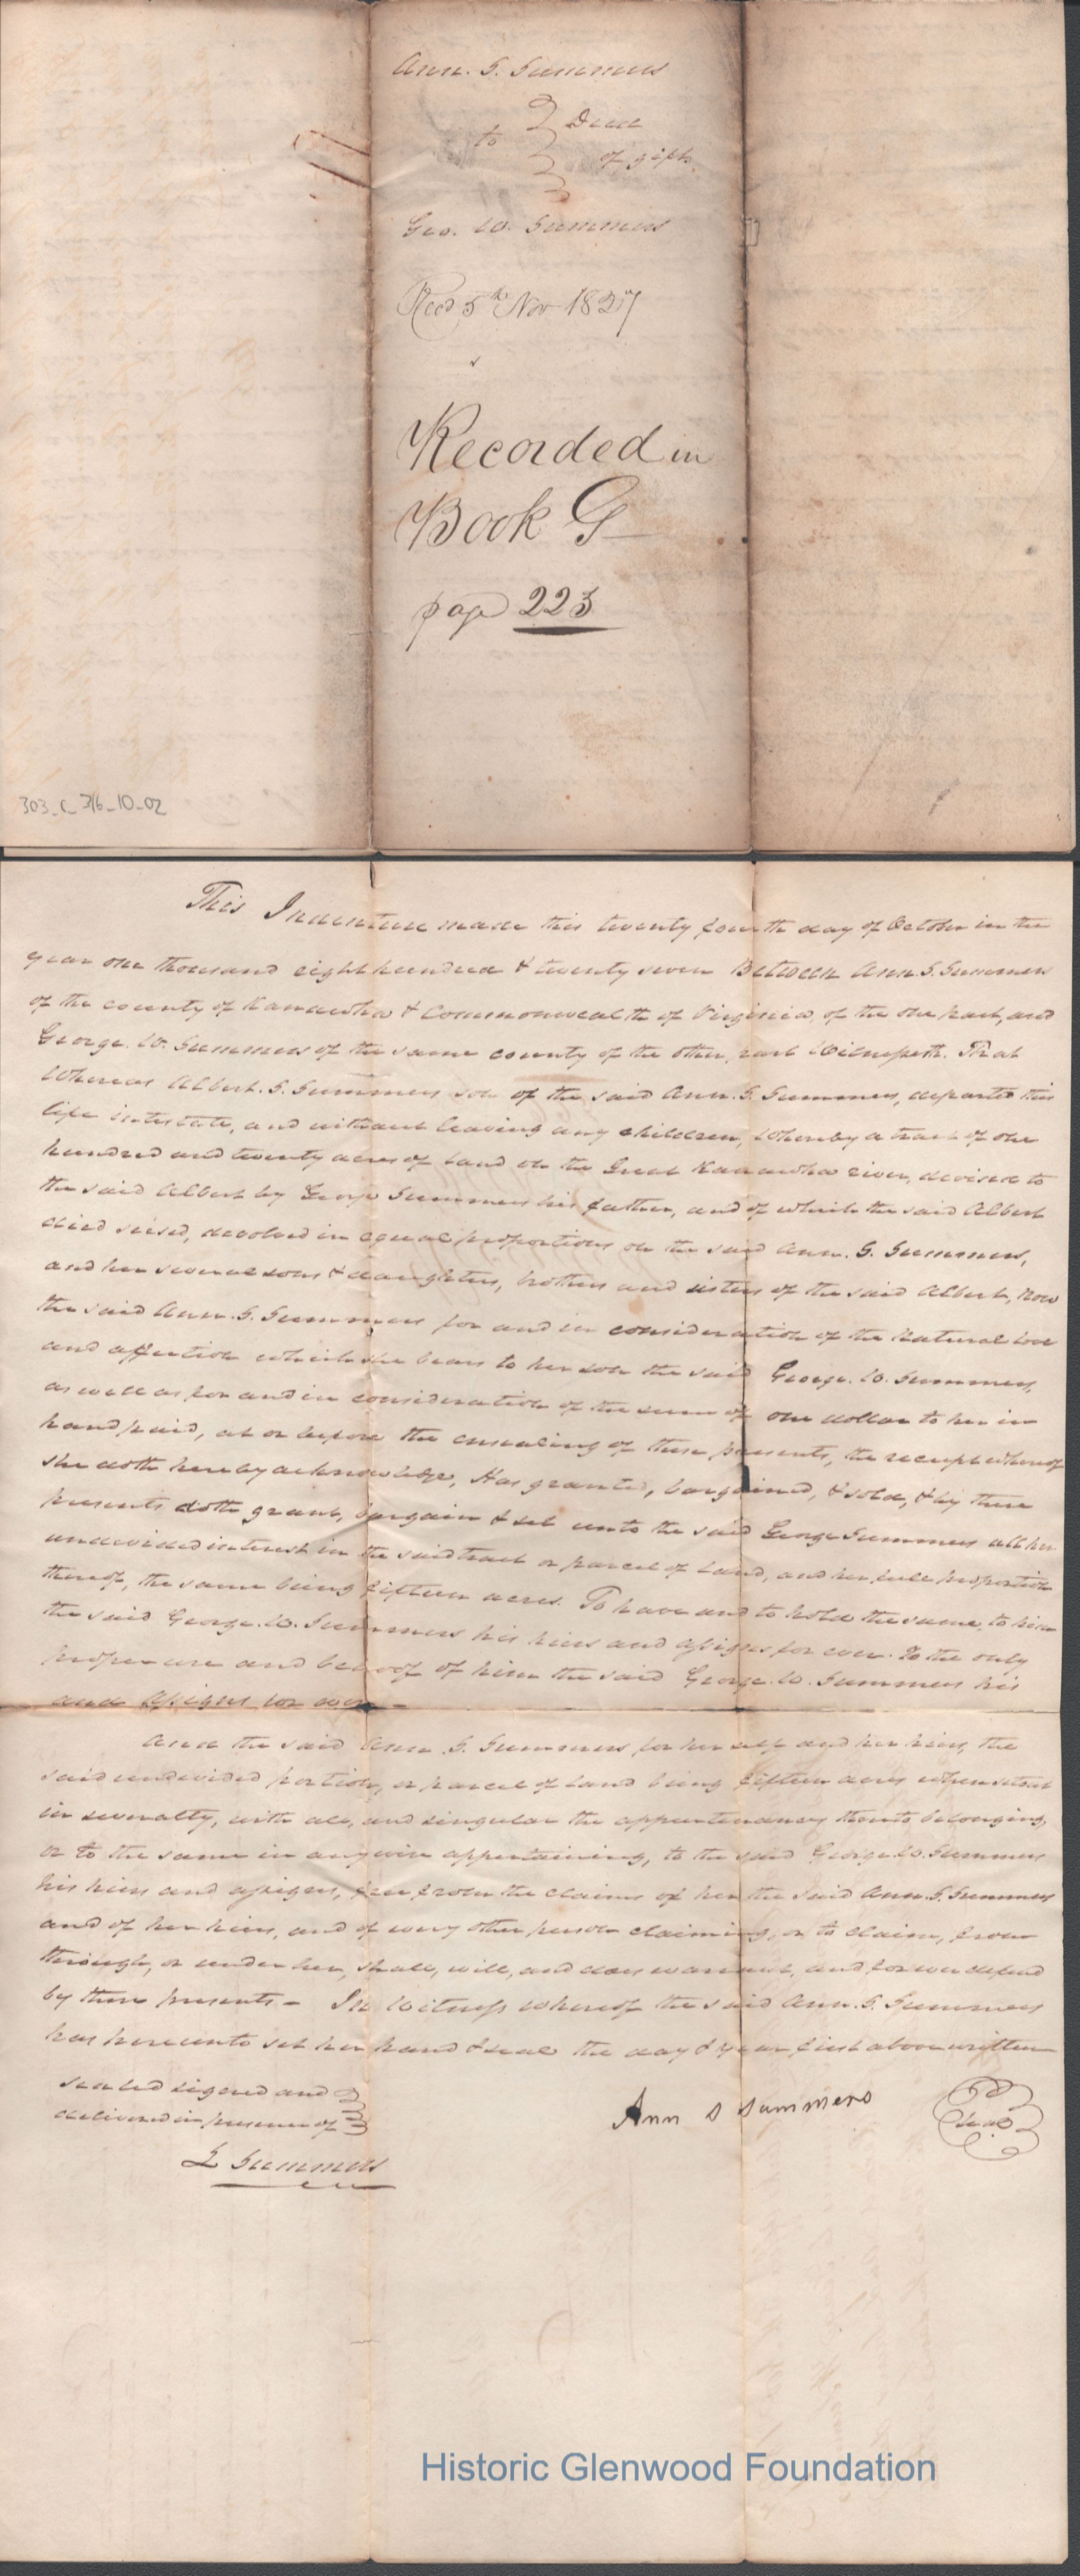 Ann. S. Summers
to } Deed
of gift
Geo. W. Summers
Recd 5th Nov 1827
Recorded in
Book G
page 223
303_C_316_10_02
This Indenture made this twenty fourth day of October in the
year one thousand eight hundred & twenty seven Between Ann S. Summers
of the county of Kanawha & Commonwealth of Virginia, of the one part, and
George. W. Summers of the same county of the other part Witnesseth. That
Whereas Albert. S. Summers son of the said Ann. S. Summers, departed this
life intestate, and without leaving any children, whereby a tract of one
hundred and twenty acres of land on the Great Kanawha river, devised to
the said Albert by George Summers his father, and of which the said Albert
died seised, devolved in equal proportions on the said Ann. S. Summers,
and her several sons & daughters, brothers and sisters of the said Albert, Now
the said Ann. S. Summers for and in consideration of the natural love
and affection which she bears to her son the said George. W. Summers,
as well as for and in consideration of the sum of one dollar to her in
hand paid, at or before the ensealing of these presents, the receipt whereof
she doth hereby acknowledge, Has granted, bargained, & sold, & by these
presents doth grant, bargain & sell unto the said George Summers all her
undivided interest in the said tract or parcel of Land, and her full proportion
thereof, the same being fifteen acres. To have and to hold the same, to him
the said George. W. Summers his heirs and assigns for ever. To the only
proper use and behoof of him the said George. W. Summers his
and assigns for ever –
And the said Ann. S. Summers for her self and her heirs, the
said undivided portion, or parcel of land being fifteen acres when set out
in severalty, with all, and singular the appurtenances thereto belonging,
or to the same in any wise appertaining, to the said George. W. Summers
his heirs and assigns, free from the claims of her the said Ann. S. Summers
and of her heirs, and of every other person claiming, or to claim, from
through, or under her, shall, will, and does warrant, and forever defend
by these presents – In Witness whereof the said Ann. S. Summers
has hereunto set her hand & seal the day & year first above written
sealed signed and
delivered in presence of
Ann S Summers
seal
L Summers
Historic Glenwood Foundation